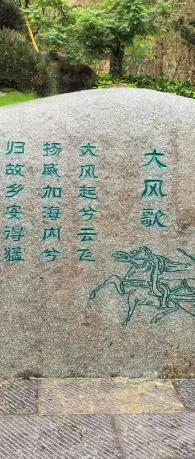 大风歌
大风起兮云飞
扬威加海内兮
归故乡安得猛